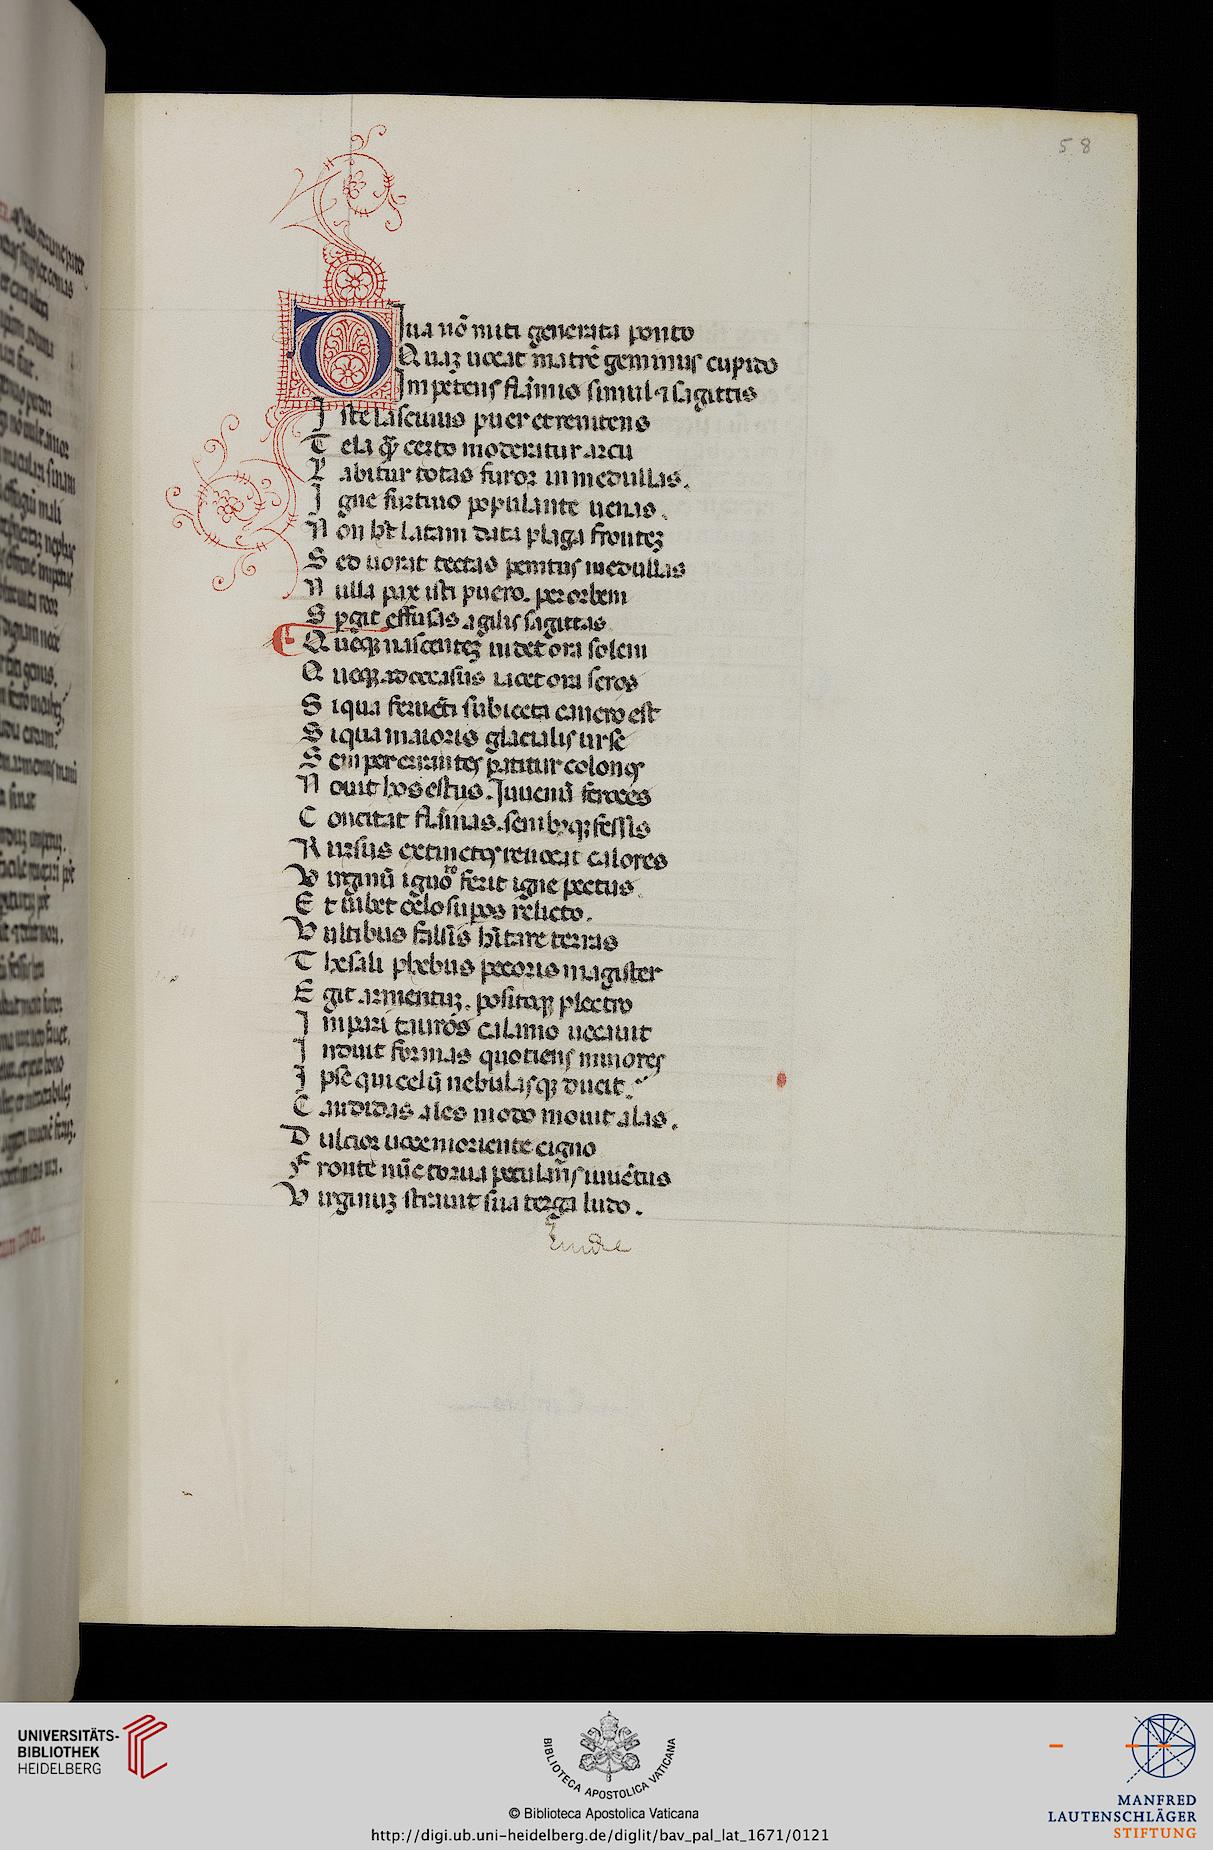 58
Diua nō miti generata ponto
Quaꝫ uocat matrē geminus cupido
Impotens flāmis simul ⁊ sagittis
Iste lasciuus puer et renitens
Tela qͣ certo moderatur arcu
Labitur totas furor in medullas.
Igne furtiuo populante uenas.
Non hꝫ latam data plaga fronteꝫ
Sed uorat tectas penitus medullas
Nulla pax isti puero. per orbem
Spgit effusas agilis sagittas
Quēqꝫ nascenteꝫ uidet ora solem
Queqꝫ ad occasus iacet ora seros
Siqua feruēti subiecta cancro est
Siqua maioris glacialis urse
Semper errantes patitur colonos
Nouit hos estus. Iuuenū feroces
Concitat flāmas. senibꝫqꝫ fessis
Rursus extinctos reuocat calores
Virginū ignoto ferit igne pectus
Et iubet celo supos relicto.
Vultibus falsis hītare terras
Thesali phebus pecoris magister
Egit armentuꝫ. positoqꝫ plectro
Impari tauros calamo uocauit
Induit formas quotiens minores
Ipse qui celū nebulasqꝫ ducit
Candidas ales modo mouit alas.
Dulcior uoce moriente cigno
Fronte nūc torua petulans iuuēcus
Virginuꝫ strauit sua terga ludo.
UNIVERSITÄTS-
BIBLIOTHEK
HEIDELBERG
BIBLIOTECA APOSTOLICA VATICANA
© Biblioteca Apostolica Vaticana
http://digi.ub.uni-heidelberg.de/diglit/bav_pal_lat_1671/0121
MANFRED
LAUTENSCHLÄGER
STIFTUNG